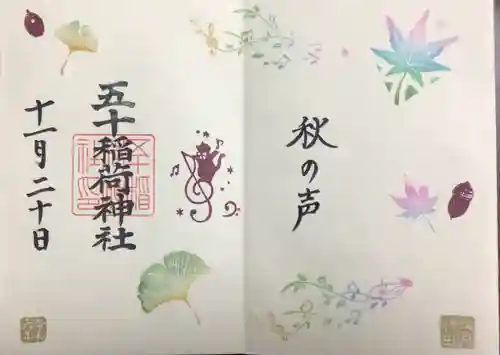 秋の声
五十稲荷神社
十一月二十日